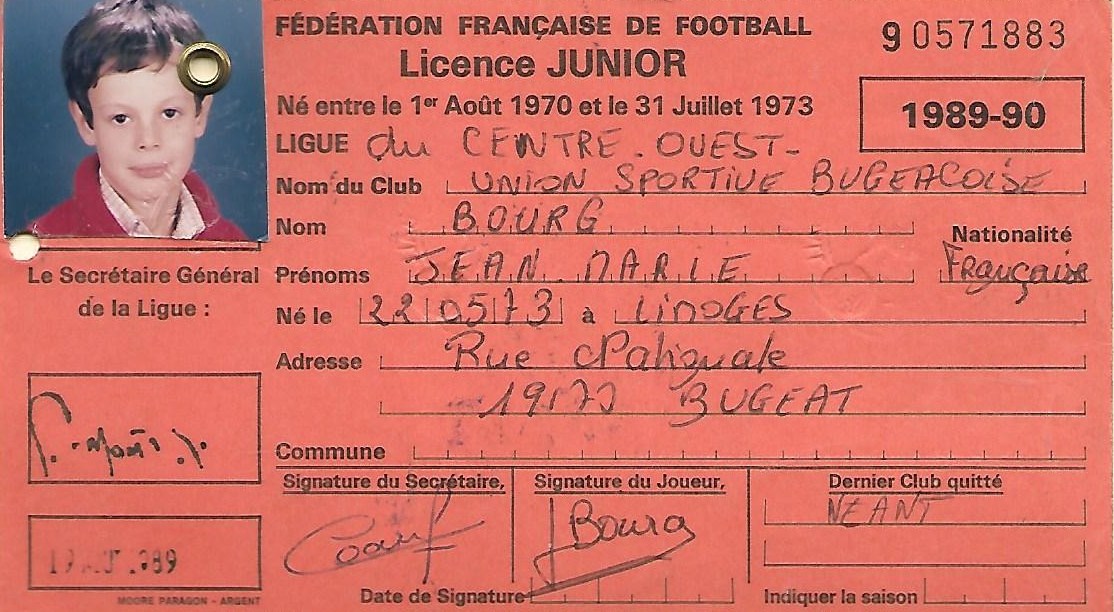 FÉDÉRATION FRANÇAISE DE FOOTBALL
9 0571883
Licence JUNIOR
Né entre le 1er Août 1970 et le 31 Juillet 1973
1989-90
LIGUE du CENTRE-OUEST-
Nom du Club UNION SPORTIVE BUGEACOISE
Nom BOURG
Nationalité
Prénoms JEAN MARIE
Française
Le Secrétaire Général
de la Ligue :
Né le 22 05 73 à LIMOGES
Adresse Rue
BUGEAT
Commune
Signature du Secrétaire,
Signature du Joueur,
Bourg
Dernier Club quitté
NEANT
Date de Signature
Indiquer la saison
MOORE PARAGON - ARGENT